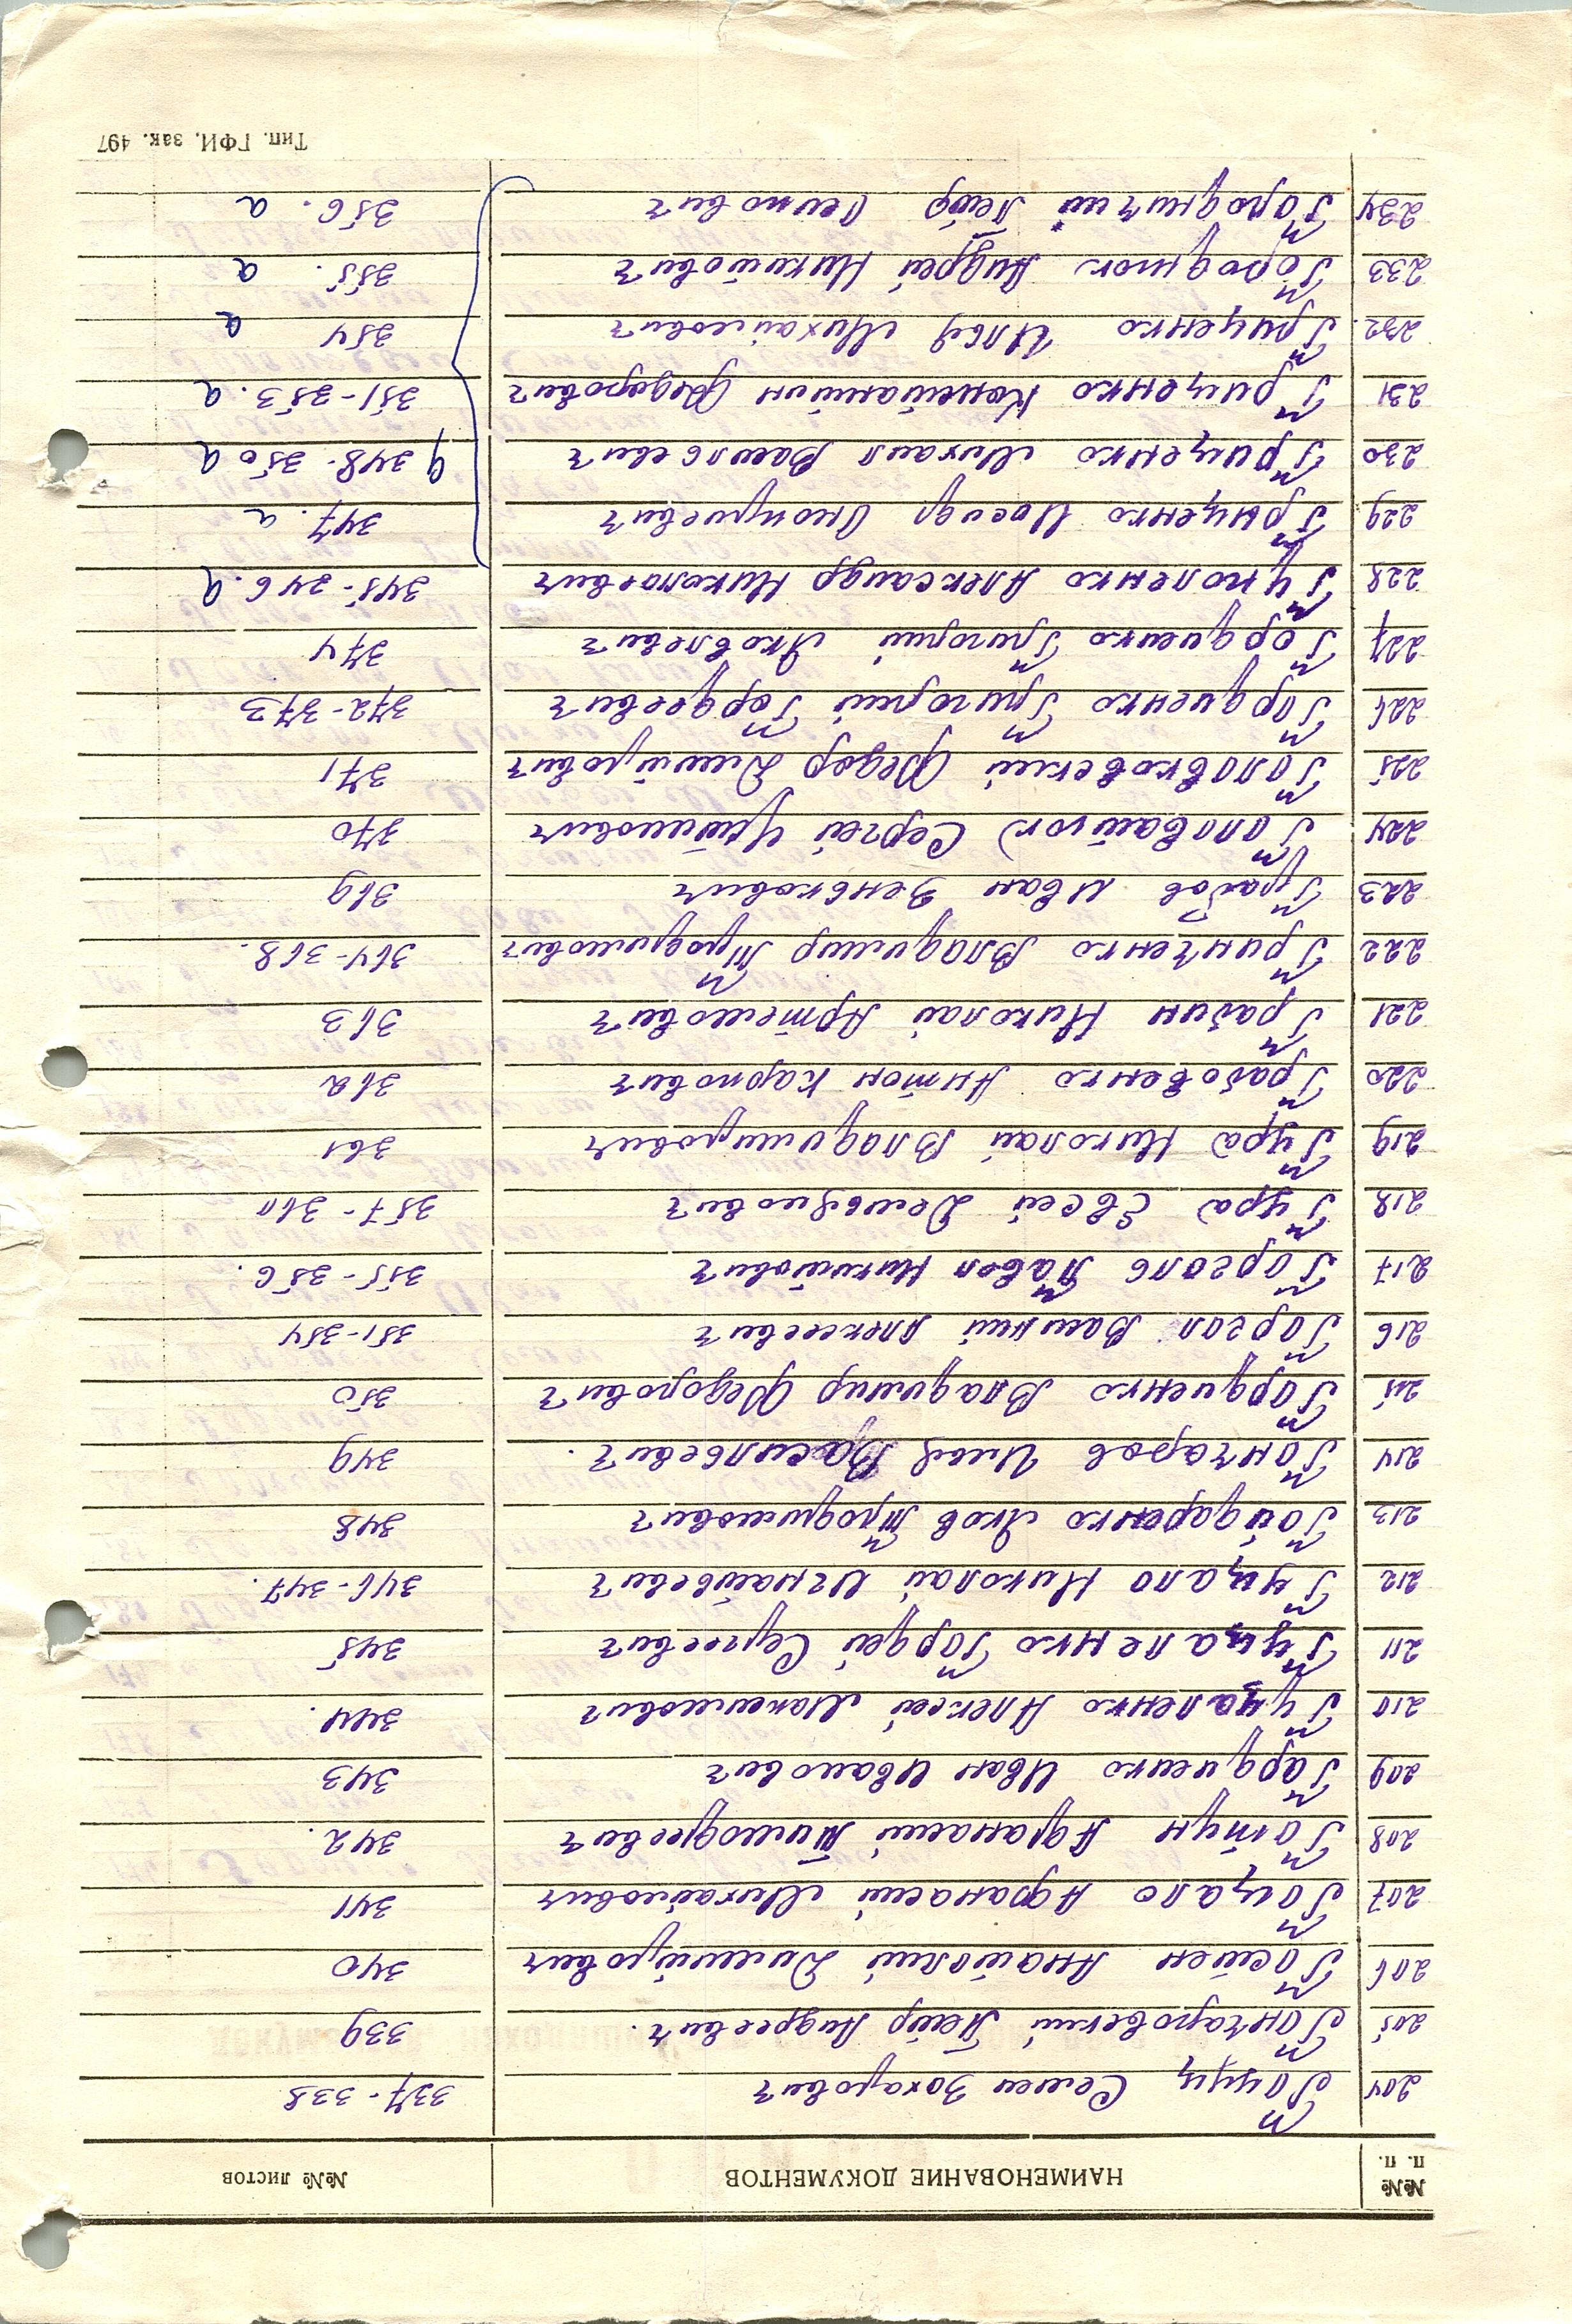 №№ п. п. НАИМЕНОВАНИЕ ДОКУМЕНТОВ №№ листов
204 Гоцуц Семен Захарович 337-338
205 Гончаровский Петр Андреевич. 339
206 Гостен Анатолий Дмитрович 340
207 Гоцало Афанасий Михайлович 341
208 Готун Афанасий Тимофеевич 342.
209 Гардиенко Иван Иванович 343
210 Гуцаленко Алексей Максимович 344.
211 Гуцаленко Гордей Сергеевич 345
212 Гуцало Николай Игнатьевич 346-347.
213 Гойдаренко Яков Трофимович 348
214 Гончаров Илья Васильевич. 349
215 Гордиенко Владимир Федорович 350
216 Горгол Василий Алексеевич 351-354
217 Горголь Павел Никитович 355-356.
218 Гура Евсей Демьянович 357-360
219 Гура Николай Владимирович 361
220 Грабовенко Антон Карпович 362
221 Грабин Николай Артемович 363
222 Гринченко Владимир Трофимович 364-368.
223 Грабов Иван Зенькович 369
224 Головатюк Сергей Устимович 370
225 Головковский Федор Дмитрович 371
226 Гордиенко Григорий Гордеевич 372-373
227 Гордиенко Григорий Яковлевич 374
228 Гуноленко Александр Николаевич 345-346. а
229 Грыценко Иосиф Оноприевич 347. а
230 Гриценко Михаил Васильевич 348-350 а
231 Гриценко Константин Федорович 351-353. а
232. Гриценко Илья Михайлович 354 а
233 Городнюк Андрей Никитович 355. а
234 Городничий Петр Осипович 356. а
Тип. ГФИ. зак. 497